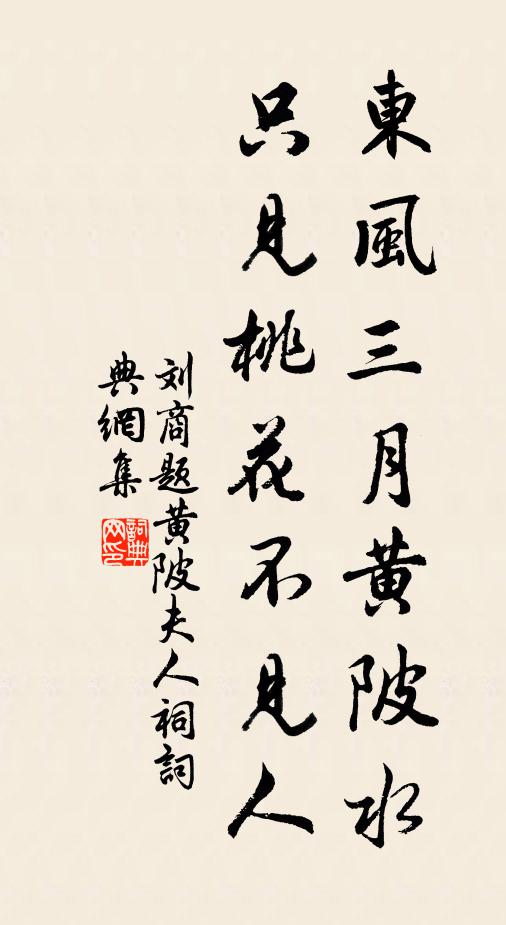 東風三月黃陂水
只見桃花不見人
刘商題黃陂夫人祠詞
典網集
詞典網印